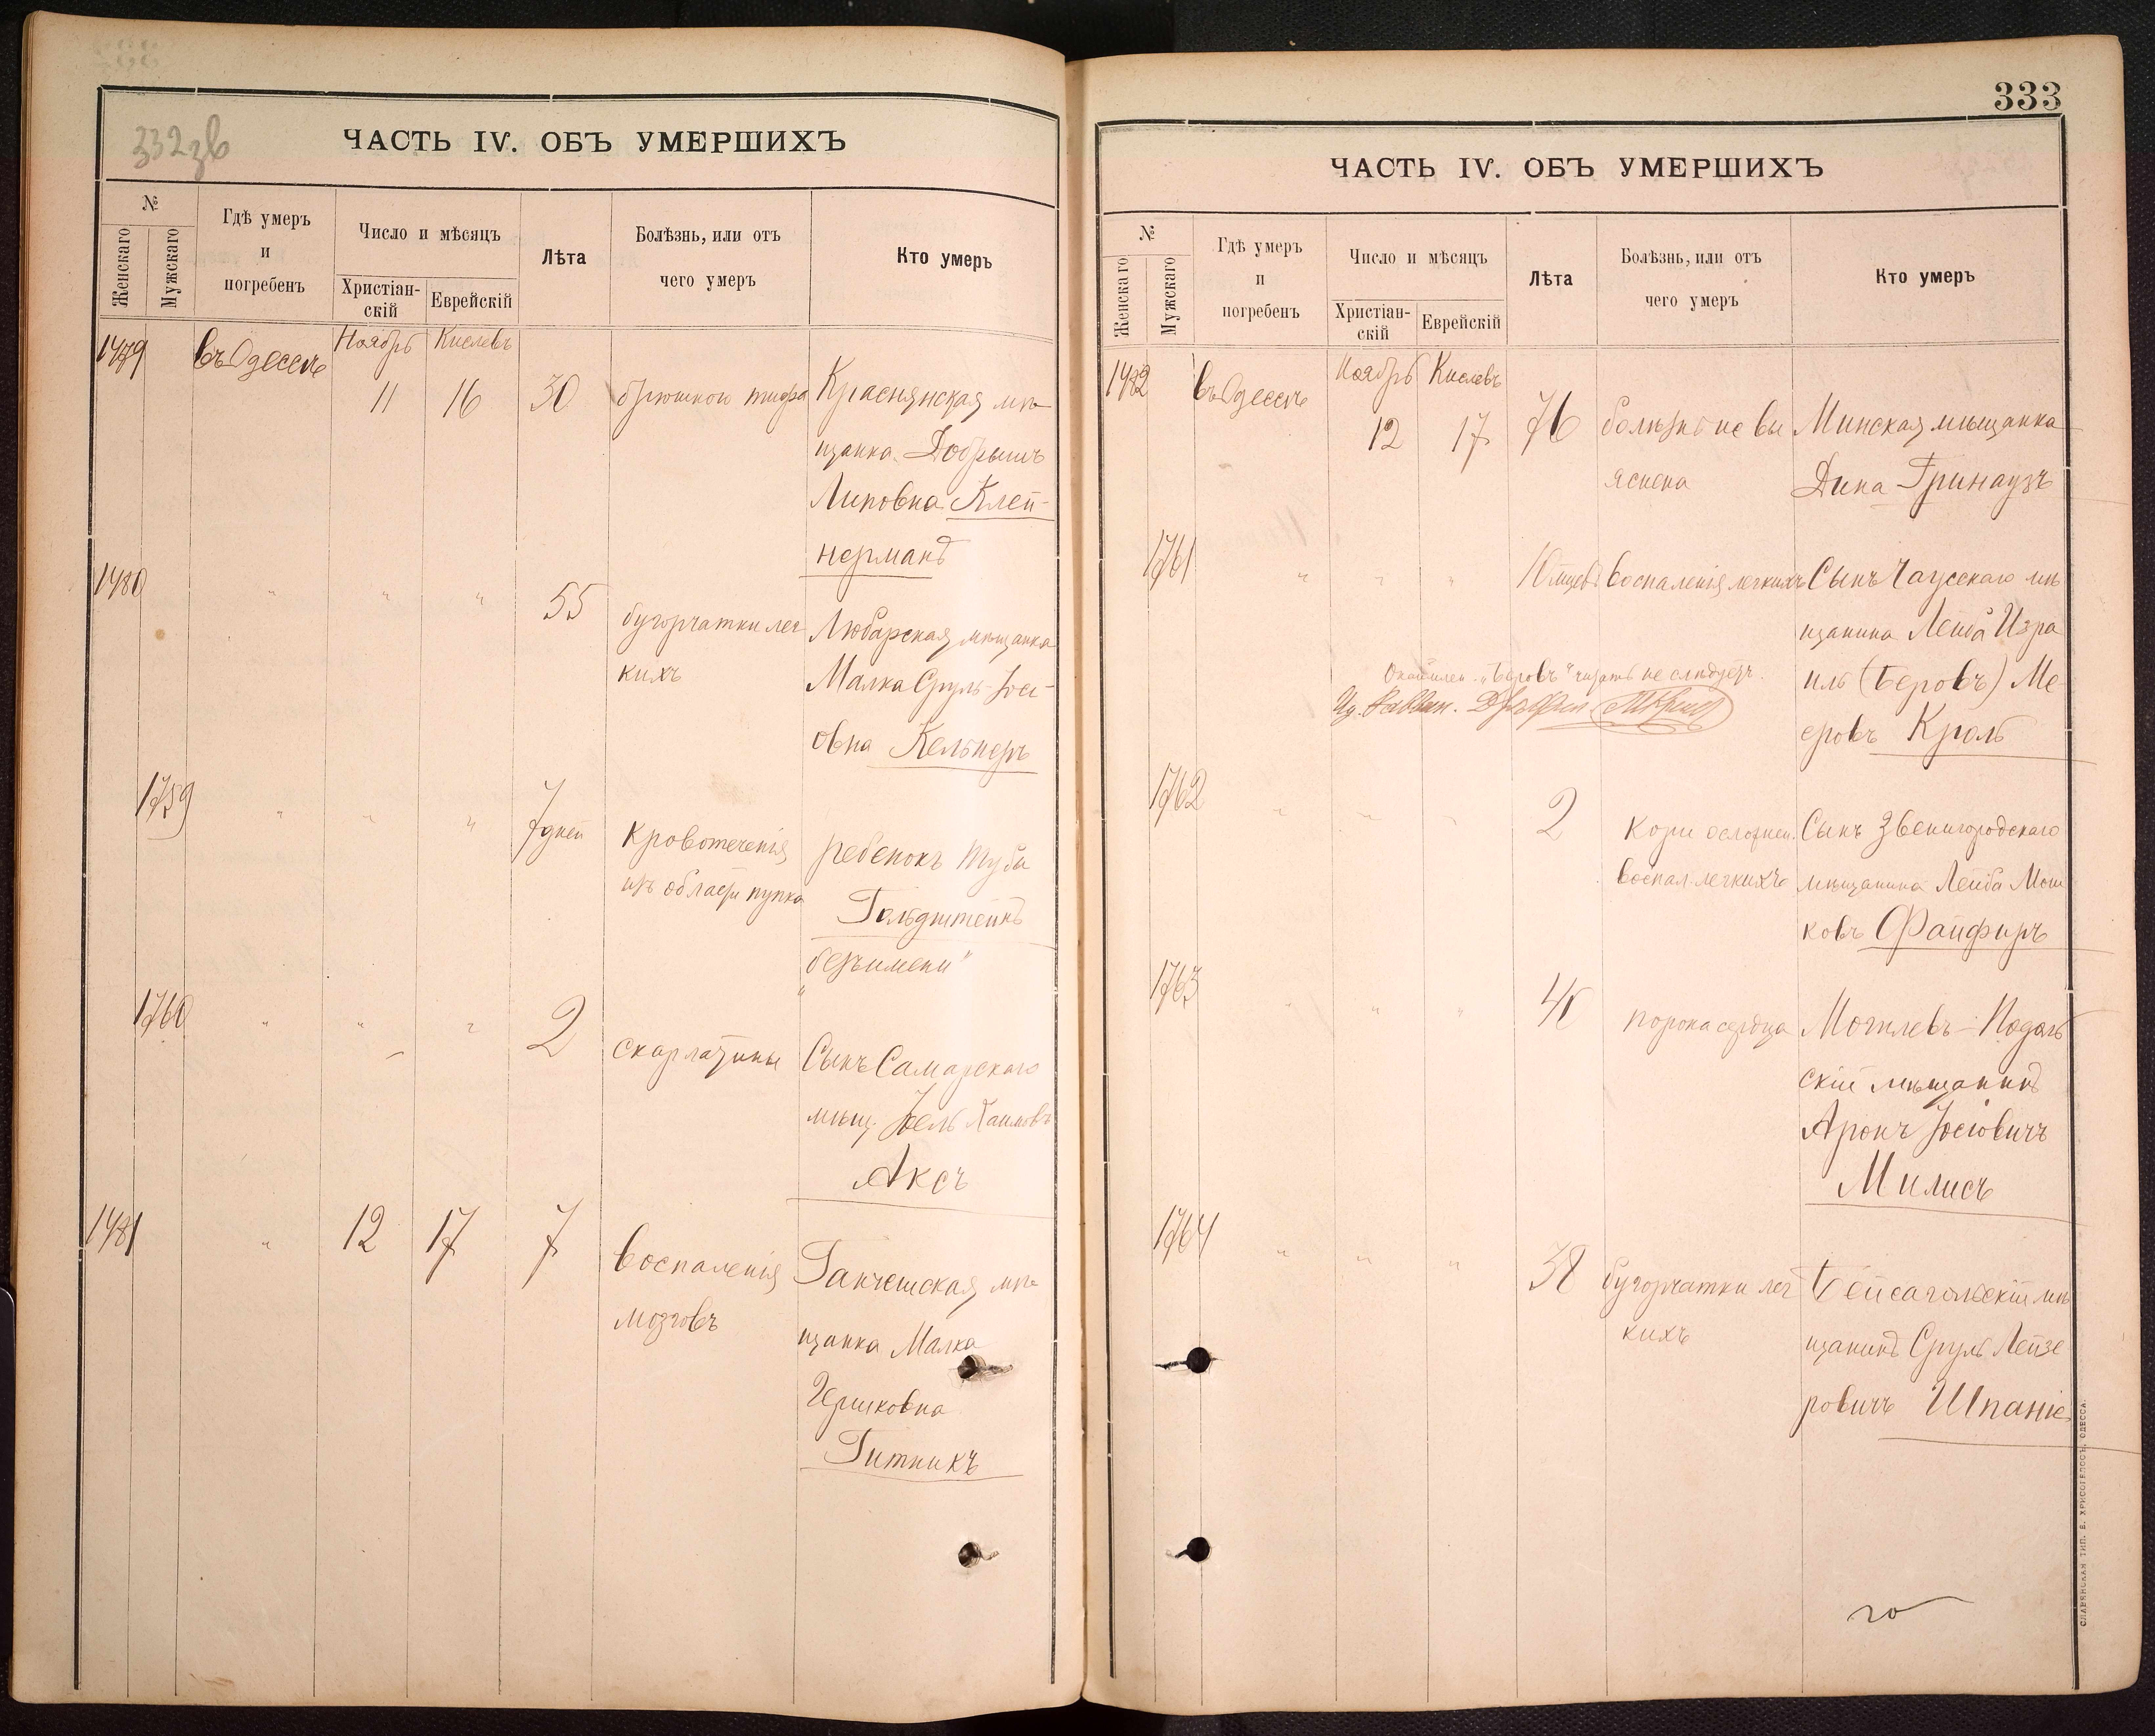 332зв
ЧАСТЬ IV. ОБЪ УМЕРШИХЪ
№
Женскаго
Мужскаго
Гдѣ умеръ
и
погребенъ
Число и мѣсяцъ
Христіан-
скій
Еврейскій
Лѣта
Болѣзнь, или отъ
чего умеръ
Кто умеръ
1479
въ Одессѣ
Ноябрь
Кислевъ
11
16
30
брюшного тифа
Краснянская мѣ-
щанка Добрышъ
Липовна Клей-
нерманъ
1480
"
"
"
55
бугорчатки лег
кихъ
Любарская мѣщанка
Малка Сруль-Іосі-
овна Кельнеръ
1759
"
"
"
7 дней
кровотеченія
изъ области пупка
ребенокъ Тубы
Гольдштейнъ
"безъ имени"
1760
"
"
"
2
скарлатины
Сынъ Самарскаго
мѣщ. Іоель Хаимовъ
Аксъ
1481
"
12
17
7
воспаленія
мозговъ
Ганчешская мѣ-
щанка Малка
Гершковна
Гитникъ
333
ЧАСТЬ IV. ОБЪ УМЕРШИХЪ
№
Женскаго
Мужскаго
Гдѣ умеръ
и
погребенъ
Число и мѣсяцъ
Христіан-
скій
Еврейскій
Лѣта
Болѣзнь, или отъ
чего умеръ
Кто умеръ
1482
въ Одессѣ
Ноябрь
Кислевъ
12
17
76
болѣзнь не вы
яснена
Минская мѣщанка
Дина Гринаузъ
1761
"
"
"
10 мцевъ
воспаленія легкихъ
Сынъ Чаусскаго мѣ
щанина Лейба Изра
иль (Беровъ) Ме
еровъ Кроль
"Беровъ" читать не слѣдуетъ.
1762
"
"
"
2
кори осложнен.
воспал. легкихъ
Сынъ Звенигородскаго
мѣщанина Лейба Мош
ковъ Файферъ
1763
"
"
"
порока сердца
Могилевъ-Подоль
скій мѣщанинъ
Аронъ Іосіовичъ
Милисъ
1764
"
"
"
38
бугорчатки лег
кихъ
Бейсагольскій мѣ
щанинъ Сруль Лейзе
ровичъ Шпаніе
СЛАВЯНСКАЯ ТИП. Е. ХРИСОГЕЛОСЪ, ОДЕССА.